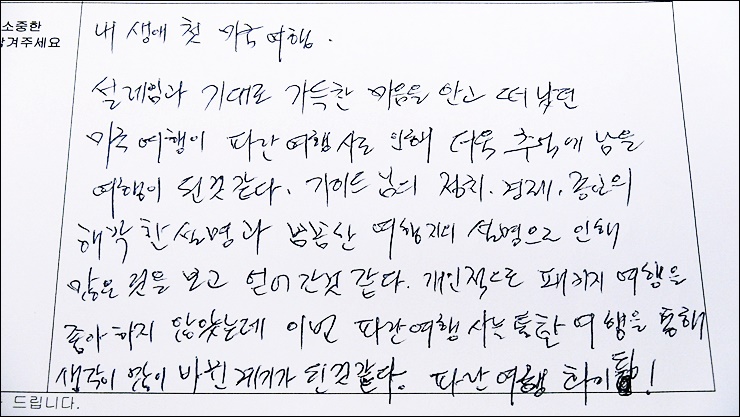 소중한
남겨주세요
내 생애 첫 미국여행.
설레임과 기대로 가득한 마음을 안고 떠났던
미국여행이 파란여행사로 인해 더욱 추억에 남을
여행이 된것같다. 가이드님의 정치. 경제.
해박한 설명과 여행지의 설명으로 인해
많은 것을 보고 얻어간것 같다. 개인적으로 패키지 여행을
좋아하지 않았는데 이번 파란여행사를 통한 여행을 통해
생각이 많이 바뀐 계기가 된것같다. 파란여행 화이팅!
드립니다.